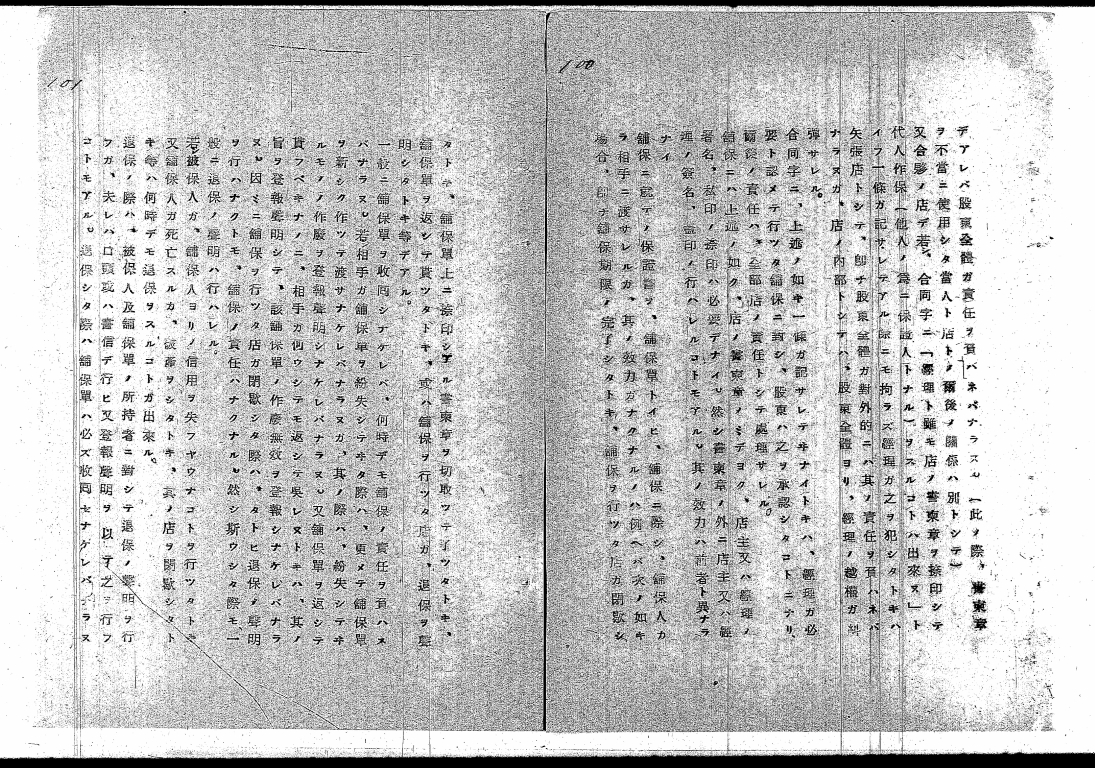 100
デアレバ股東全體ガ責任ヲ負ハネバナラヌ。（此ノ際、書柬章
ヲ不當ニ使用シタ當人ト店トノ爾後ノ關係ハ別トシテ）
又合夥ノ店デ若シ、合同字ニ「經理ト雖モ店ノ書柬章ヲ捺印シテ
代人作保（他人ノ爲ニ保證人トナル）ヲスルコトハ出來ヌ」ト
イフ一條ガ記サレテアル際ニモ拘ラズ經理ガ之ヲ犯シタトキハ
矢張店トシテ、卽チ股東全體ガ對外的ニハ其ノ責任ヲ負ハネバ
ナラヌガ、店ノ内部トシテハ、股東全體ヨリ、經理ノ越權ガ糾
彈サレル。
合同字ニ、上述ノ如キ一條ガ記サレテヰナイトキハ、經理ガ必
要ト認メテ行ツタ舖保ニ對シ、股東ハ之ヲ承認シタコトニナリ
舖保ノ責任ハ、全部店ノ責任トシテ處理サレル。
舖保ニハ上述ノ如ク、店ノ書柬章ノミデヨク、店主又ハ經理ノ
署名、私印ノ捺印ハ必要デナイ。然シ書柬章ノ外ニ店主又ハ經
理ノ簽名、蓋印ノ行ハレルコトモアル。其ノ效力ハ前者ト異ナラ
ナイ
舖保ニ就テノ保證書ヲ、舖保單トイヒ、舖保ニ際シ、舖保人カ
ラ相手ニ渡サレルガ、其ノ效力ガナクナルノハ例ヘバ次ノ如キ
場合、卽チ舖保期限ノ完了シタトキ、舖保ヲ行ツタ店ガ閉歇シ
101
タトキ、舖保單上ニ捺印シテアル書柬章ヲ切取ツテ了ツタトキ、
舖保單ヲ返シテ貰ツタトキ、或ハ舖保ヲ行ツタ店ガ、退保ヲ聲
明シタトキ等デアル。
一般ニ舖保單ヲ收囘シナケレバ、何時デモ舖保ノ責任ヲ負ハネ
バナラヌ。若シ相手ガ舖保單ヲ紛失シテヰタ際ハ、更メテ舖保單
ヲ新シク作ツテ渡サナケレバナラヌガ、其ノ際ハ、紛失シテヰ
ルモノノ作廢ヲ登報聲明シナケレバナラヌ。又舖保單ヲ返シテ
貰フベキナノニ、相手ガ例ウシテモ返シテ吳レヌトキハ、其ノ
旨ヲ登報聲明シテ、該舖保單ノ作廢無效ヲ登報シナケレバナラ
ヌ。因ミニ舖保ヲ行ツタ店ガ閉歇シタ際ハ、タトヒ退保ノ聲明
ヲ行ハナクトモ、舖保ノ責任ハナクナル。然シ斯ウシタ際モ一
般ニ退保ノ聲明ハ行ハレル。
若シ被保人ガ、舖保人ヨリノ信用ヲ失フヤウナコトヲ行ツタトキ
又舖保人ガ死亡スルカ、破產ヲシタトキ、其ノ店ヲ閉歇シタト
キ等ハ何時デモ退保ヲスルコトガ出來ル。
退保ノ際ハ、被保人及舖保單ノ所持者ニ對シテ退保ノ聲明ヲ行
フガ、夫レハ口頭或ハ書信デ行ヒ又登報聲明ヲ以テ之ヲ行フ
コトモアル。退保シタ際ハ舖保單ハ必ズ收囘セナケレバナラヌ